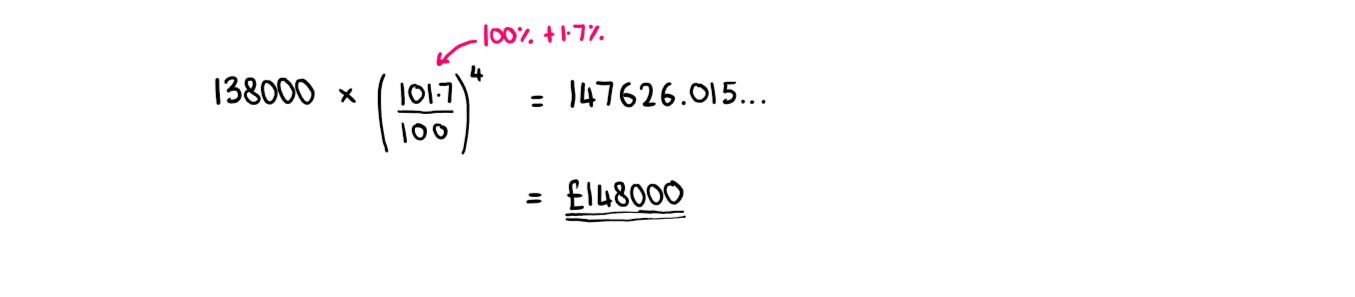 100% + 1.7%
138000 × (101.7/100)^4 = 147626.015...
= £148000